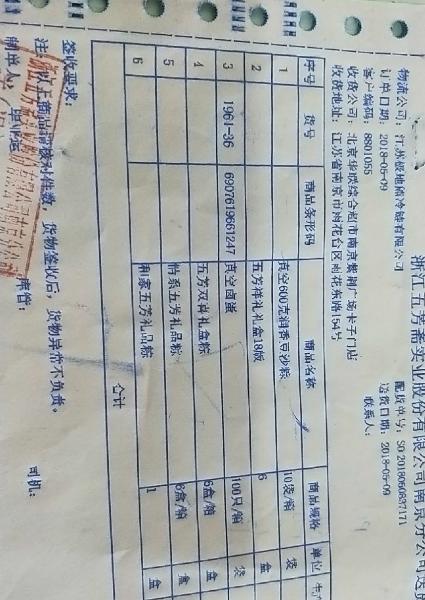 浙江五芳斋实业股份有限公司南京分公司送货
物流公司：江苏极地熊冷链有限公司 配货单号：SO2018060837171
订单日期：2018-05-09 送货日期：2018-05-09
客户编码：8801055 联系人：
收货公司：北京华联综合超市南京紫荆广场卡子门店
收货地址：江苏省南京市雨花台区雨花东路154号
序号 货号 商品条形码 商品名称 商品规格 单位
1 真空600克润香豆沙粽 10袋/箱 袋
2 五芳祥礼礼盒18版 6 盒
3 1961-36 6907619661247 真空卤蛋 100只/箱 袋
4 五芳双喜礼盒粽 6盒/箱 盒
5 情系五芳礼品粽 6盒/箱 盒
6 和家五芳礼品粽 1 盒
合计
签收要求：
注：以上商品请核对件数，货物签收后，货物异常不负责。
制单人： 库管： 司机：